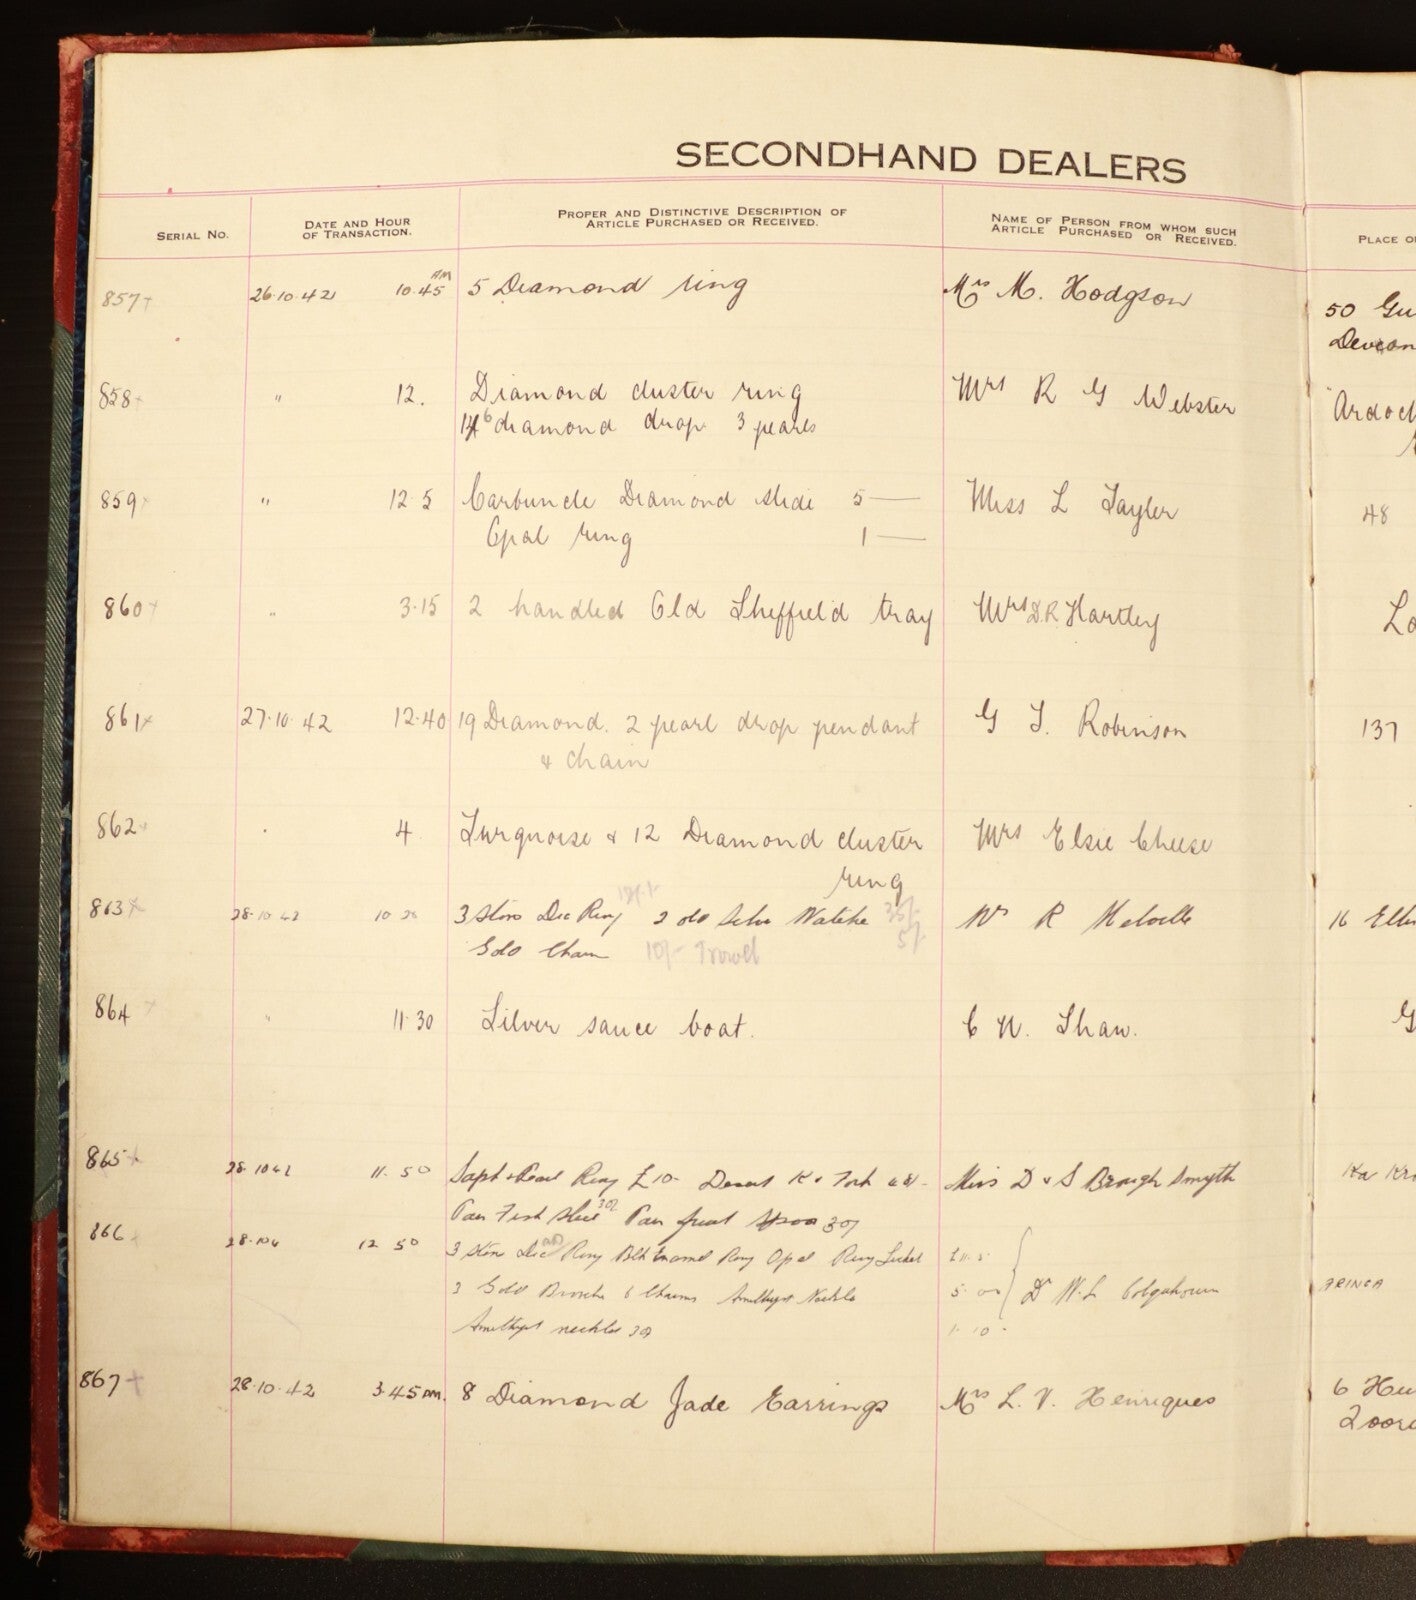 SECONDHAND DEALERS
SERIAL NO.
DATE AND HOUR
OF TRANSACTION.
PROPER AND DISTINCTIVE DESCRIPTION OF
ARTICLE PURCHASED OR RECEIVED.
NAME OF PERSON FROM WHOM SUCH
ARTICLE PURCHASED OR RECEIVED.
PLACE O
857+ 26.10.42 10.45 AM 5 Diamond ring Mrs M. Hodgson 50 Gu
Devon
858+ " 12. Diamond cluster ring Mrs R G Webster "Ardoch
diamond drop 3 pearls
859+ " 12.5 Carbuncle Diamond slide 5— Miss L Tayler 48
Opal ring 1—
860+ " 3.15 2 handled Old Sheffield tray Mrs D.R. Hartley Lo
861+ 27.10.42 12.40 19 Diamond. 2 pearl drop pendant G T. Robinson 137
& chain
862+ 4 Turquoise & 12 Diamond cluster Mrs Elsie Cheese
ring
863+ 28.10.42 3 Stone Dia Ring 2 old Silver Watches 35/- R 16 Ell
5/-
Gold Chain 10/-
864 + " 11.30 Silver sauce boat. C N. Shaw. G
865+ 28.10.42 11.50 Saph & Pearl Ring £10- Desert K & Fork Miss D & S Brough Smyth
Pair Fish 30/ Pair fruit 30/
866 + 12 50 3 Stone Dia Ring Blk Enamel Ring Opal Ring Locket
3 Gold Brooches 6 Charms Amethyst Necklace 5 Dr W.L. Colquhoun
Amethyst necklace 30/ 1.10.
867+ 28.10.42 3.45 PM. 8 Diamond Jade Earrings Mrs L. V. Henriques 6 Hu
Toora